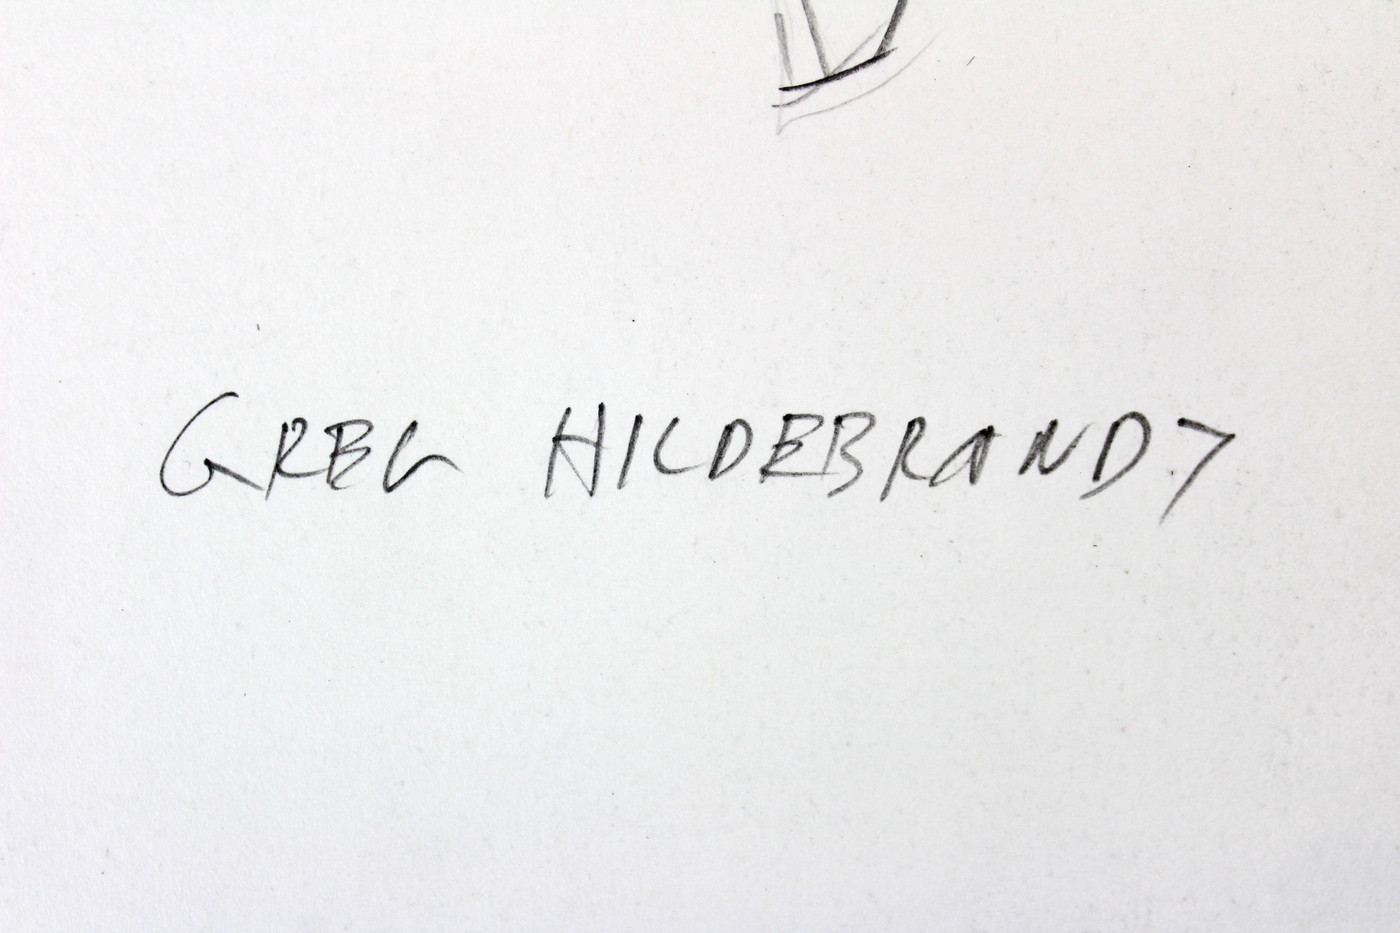 GREG HILDEBRANDT